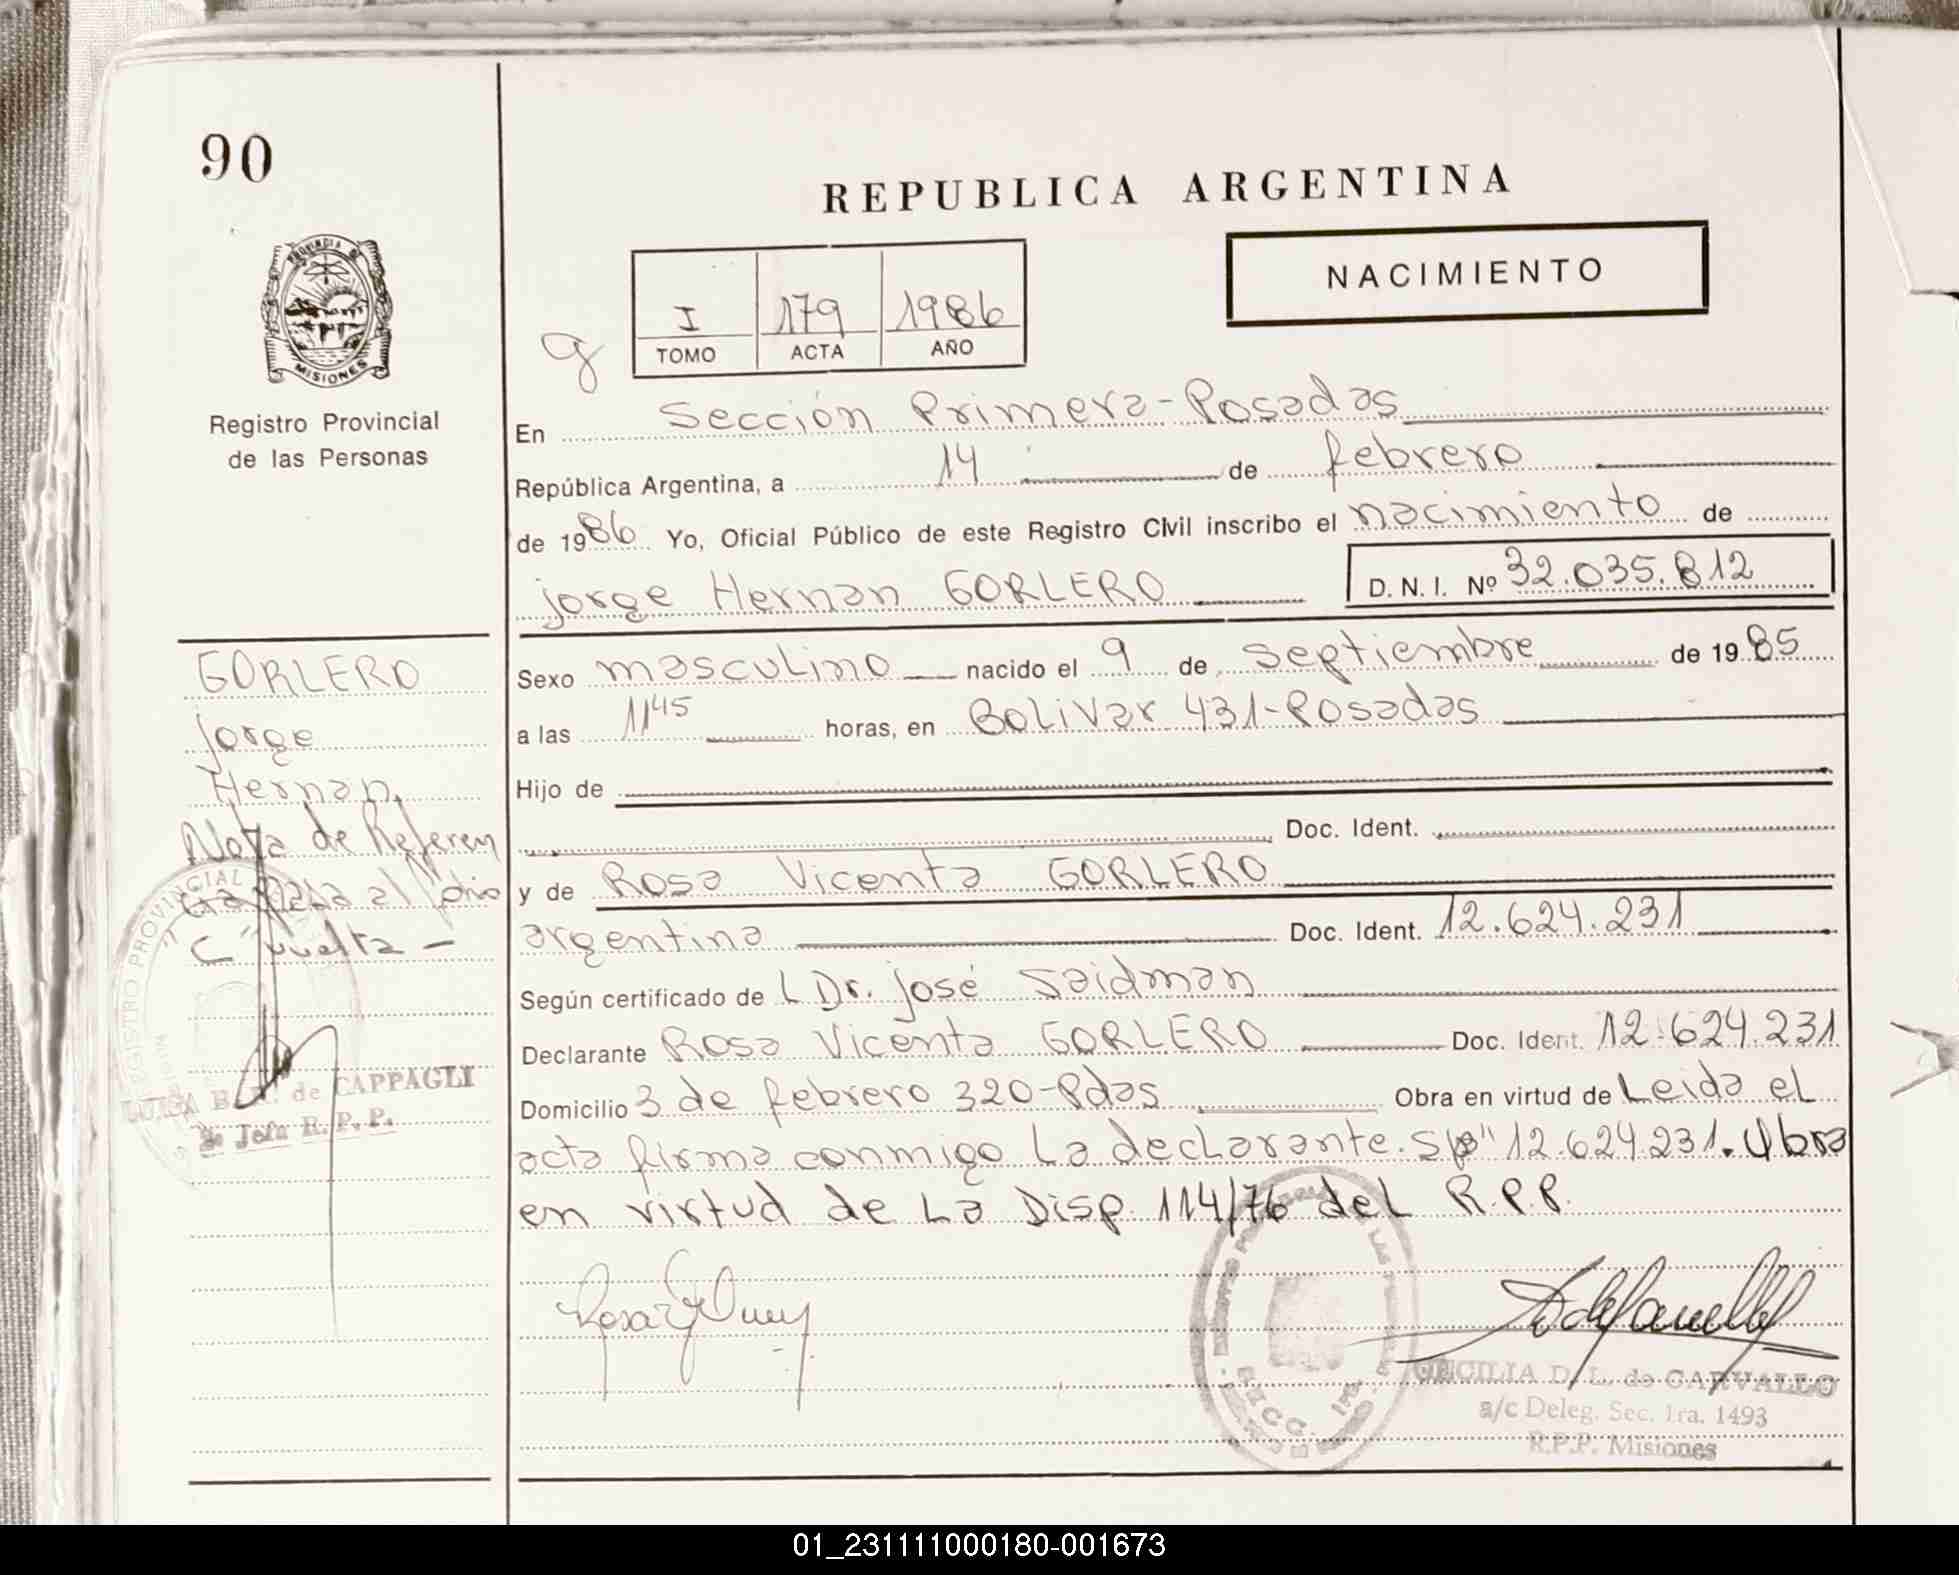 90
REPUBLICA ARGENTINA
NACIMIENTO
PROVINCIA D
MISIONES
Registro Provincial
de las Personas
I 179 1986
TOMO ACTA AÑO
En Sección Primera-Posadas
República Argentina, a 14 de febrero
de 1986 Yo, Oficial Público de este Registro Civil inscribo el nacimiento de
jorge Hernan GORLERO D. N. I. Nº 32.035.812
Sexo masculino nacido el 9 de septiembre de 1985
a las 11 45 horas, en BoLiVar 431-Posadas
Hijo de
Doc. Ident.
y de Rosa Vicenta GORLERO
argentina Doc. Ident. 12.624.231
Según certificado de L Dr. josé Saidman
Declarante Rosa Vicenta GORLERO Doc. Ident. 12.624.231
Domicilio 3 de febrero 320-Pdas Obra en virtud de Leida el
acta firma conmigo La declarante. 12.624.231. Obra
en virtud de La Disp 114/76 del R.P.P.
GORLERO
jorge
Hernan
Nota de Referen
cia al folio
C" vuelta -
LUISA B. de CAPPAGLI
Jefa R.P.P.
CECILIA D. L. de CARVALLO
a/c Deleg. Sec. 1ra. 1493
R.P.P. Misiones
01_231111000180-001673